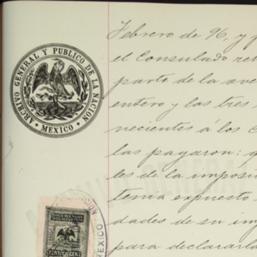 ARCHIVO GENERAL Y PUBLICO DE LA NACION
• MEXICO •
Febrero de 96, y p
el Consulado re
parte de la ave
entero y los tres
necientes á los C
las pagaron: q
les de la imposi
tema expuesto
dades de su im
para declararla
MEXICO